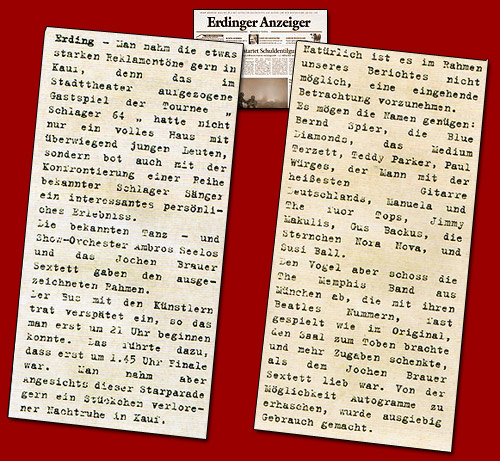 Erdinger Anzeiger
startet Schuldentilgu
Erding – Man nahm die etwas
starken Reklametöne gern in
Kauf, denn das im
Stadttheater aufgezogene
Gastspiel der Tournee „
Schlager 64 „ hatte nicht
nur ein volles Haus mit
überwiegend jungen Leuten,
sondern bot auch mit der
Konfrontierung einer Reihe
bekannter Schlager Sänger
ein interessantes persönli-
ches Erlebniss.
Die bekannten Tanz – und
Show-Orchester Ambros Seelos
und das Jochen Brauer
Sextett gaben den ausge-
zeichneten Rahmen.
Der Bus mit den Künstlern
trat verspätet ein, so das
man erst um 21 Uhr beginnen
konnte. Das führte dazu,
dass erst um 1.45 Uhr Finale
war. Man nahm aber
angesichts dieser Starparade
gern ein Stückchen verlore-
ner Nachtruhe in Kauf.
Natürlich ist es im Rahmen
unseres Berichtes nicht
möglich, eine eingehende
Betrachtung vorzunehmen.
Es mögen die Namen genügen:
Bernd Spier, die Blue
Diamonds, das Medium
Terzett, Teddy Parker, Paul
Würges, der Mann mit der
heißesten Gitarre
Deutschlands, Manuela und
The Four Tops, Jimmy
Makulis, Gus Backus, die
Sternchen Nora Nova, und
Susi Ball.
Den Vogel aber schoss die
The Memphis Band aus
München ab, die mit ihren
Beatles Nummern, fast
gespielt wie im Original,
den Saal zum Toben brachte
und mehr Zugaben schenkte,
als dem Jochen Brauer
Sextett lieb war. Von der
Möglichkeit Autogramme zu
erhaschen, wurde ausgiebig
Gebrauch gemacht.